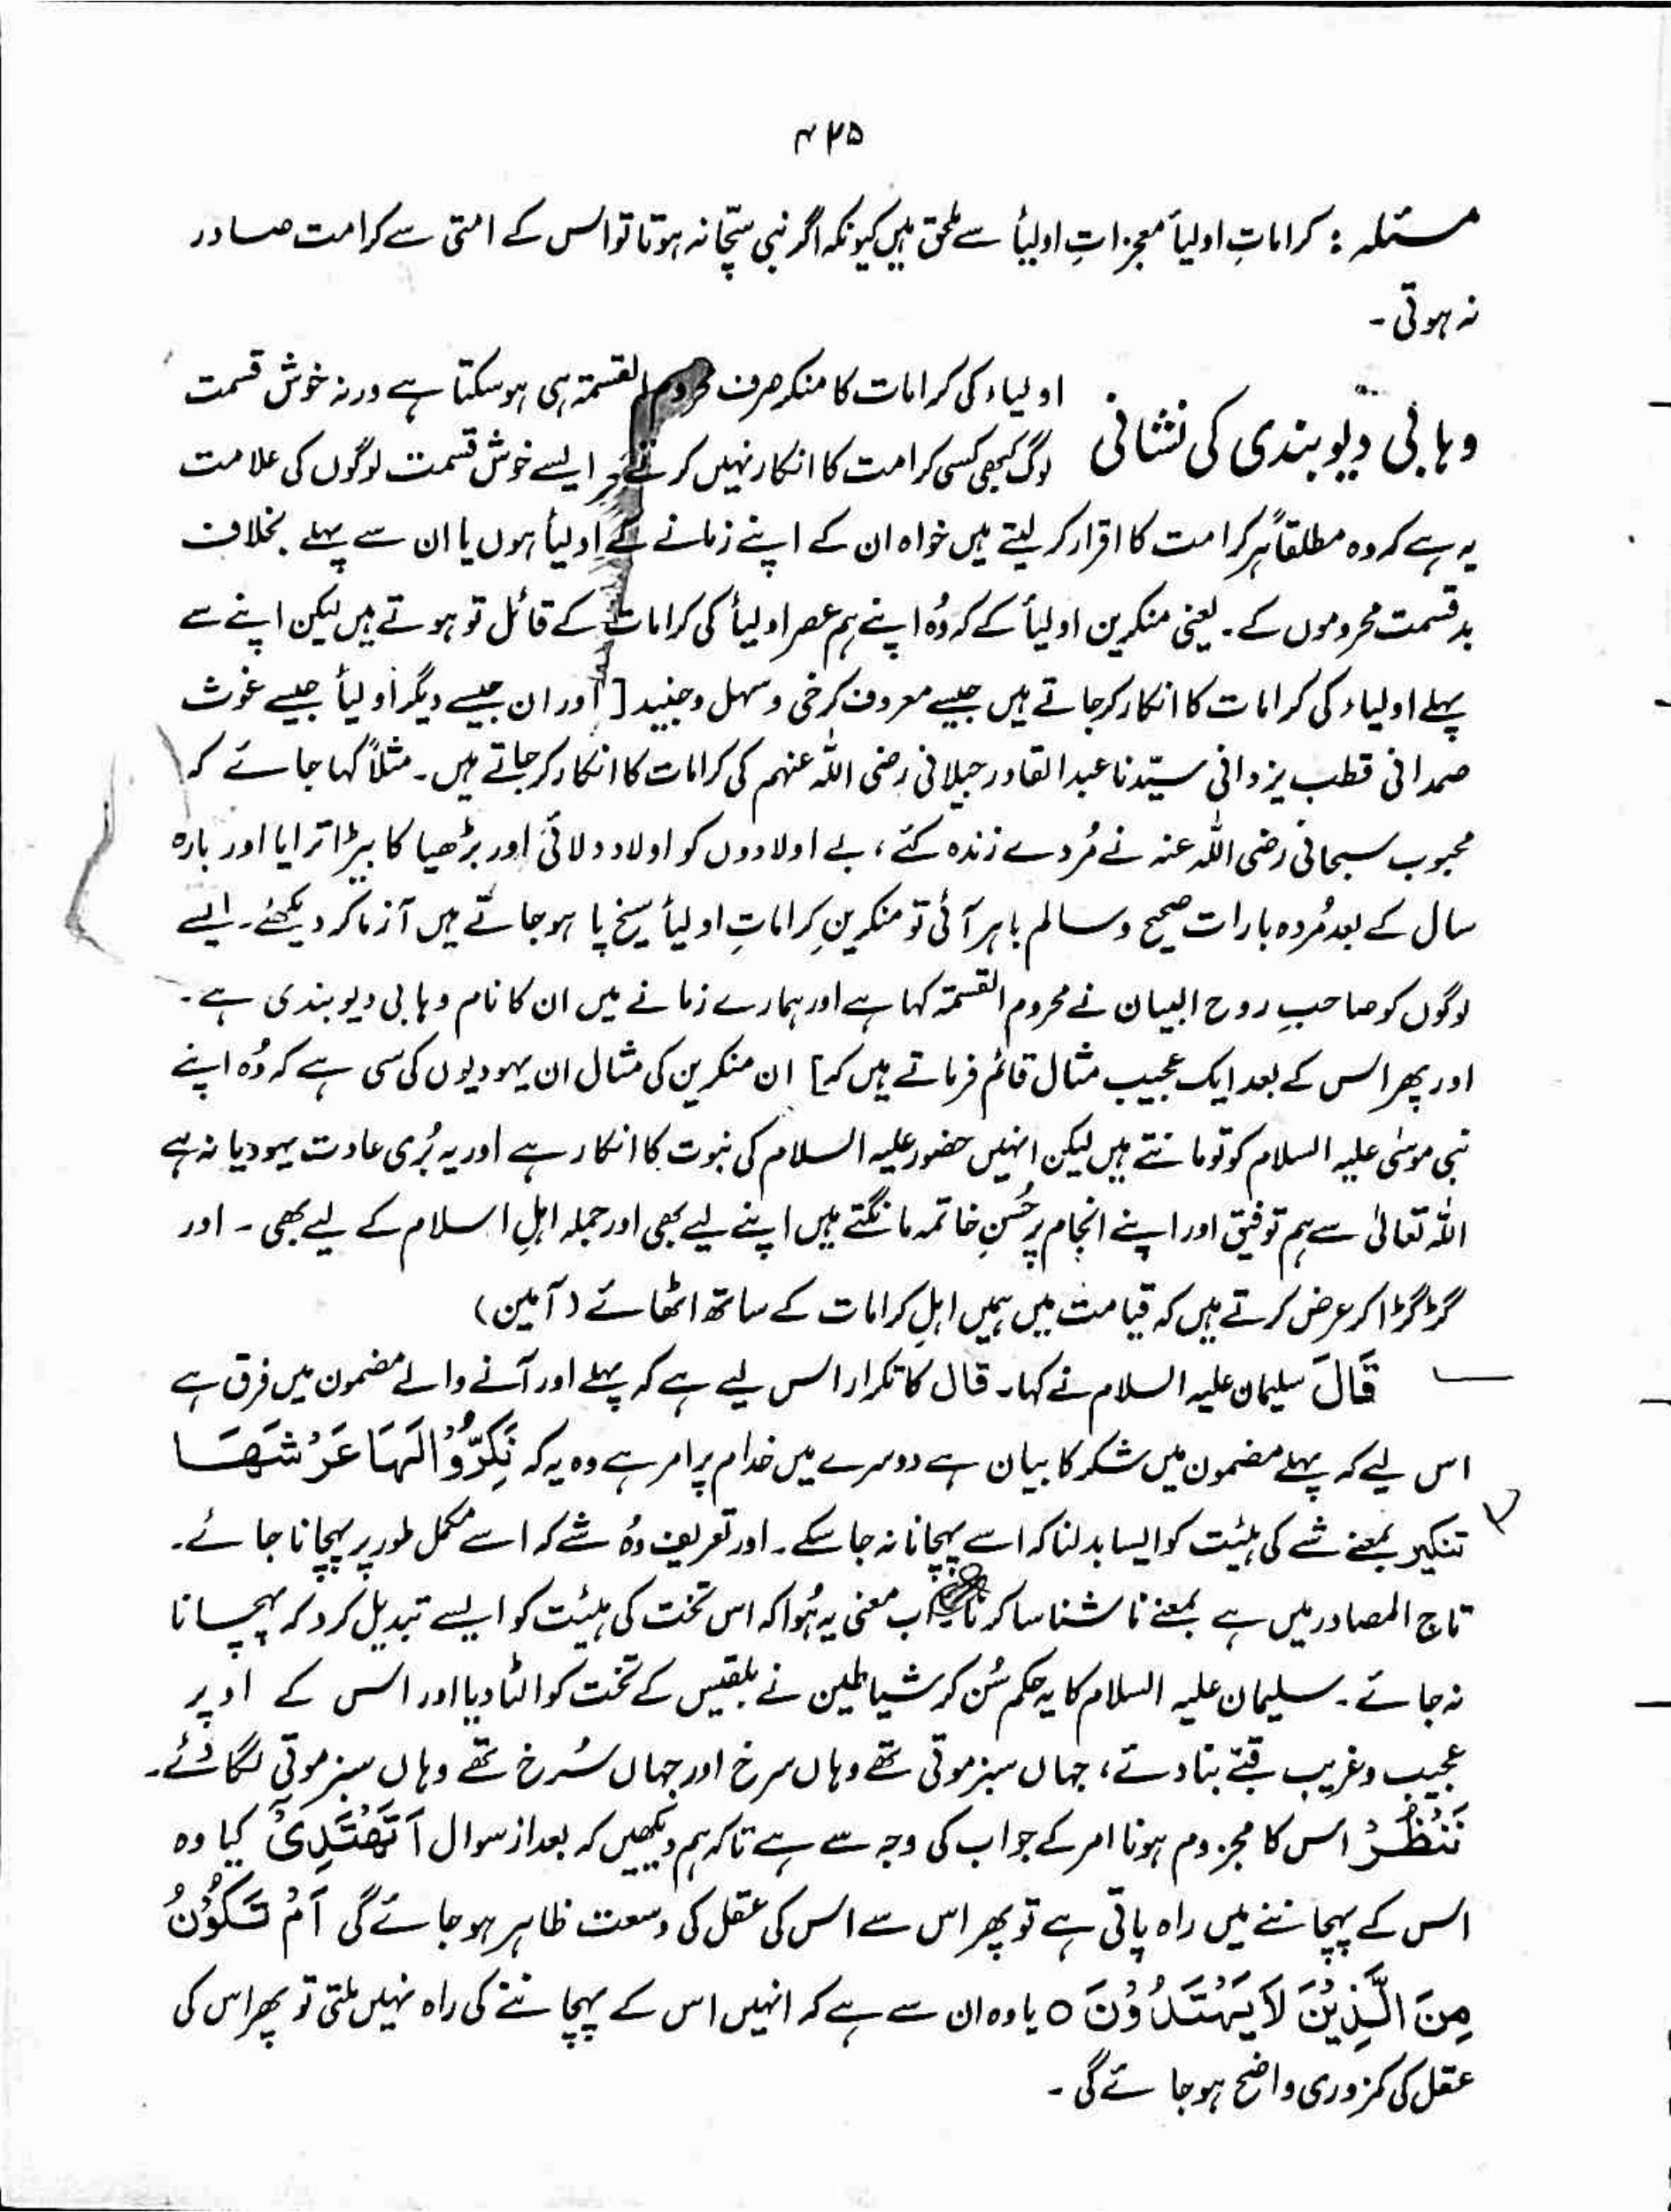 ۴۲۵
مسئلہ : کراماتِ اولیأ معجزاتِ اولیأ سے ملحق ہیں کیونکہ اگر نبی سچّا نہ ہوتا تو اس کے امتی سے کرامت صادر
نہ ہوتی ۔
اولیاء کی کرامات کا منکر صرف محروم القسمۃ ہی ہو سکتا ہے ورنہ خوش قسمت
وہابی دیوبندی کی نشانی
لوگ کبھی کسی کرامت کا انکار نہیں کرتے ایسے خوش قسمت لوگوں کی علامت
یہ ہے کہ وہ مطلقاً ہر کرامت کا اقرار کر لیتے ہیں خواہ ان کے اپنے زمانے کے اولیأ ہوں یا ان سے پہلے بخلاف
بدقسمت محروموں کے ۔ یعنی منکرین اولیأ کے کہ وُہ اپنے ہم عصر اولیأ کی کرامات کے قائل تو ہوتے ہیں لیکن اپنے سے
پہلے اولیاء کی کرامات کا انکار کر جاتے ہیں جیسے معروف کرخی و سہل و جنید [ اور ان جیسے دیگر اولیأ جیسے غوث
صمدانی قطب یزدانی سیّدنا عبدالقادر جیلانی رضی اللہ عنہم کی کرامات کا انکار کر جاتے ہیں ۔ مثلاً کہا جائے کہ
محبوب سبحانی رضی اللہ عنہ نے مُردے زندہ کئے ، بے اولادوں کو اولاد دلائی اور بڑھیا کا بیڑا ترایا اور بارہ
سال کے بعد مُردہ بارات صحیح و سالم باہر آئی تو منکرینِ کراماتِ اولیأ سیخ پا ہو جاتے ہیں آزما کر دیکھئے ۔ ایسے
لوگوں کو صاحبِ روح البیان نے محروم القسمۃ کہا ہے اور ہمارے زمانے میں ان کا نام وہابی دیوبندی ہے ۔
اور پھر اس کے بعد ایک عجیب مثال قائم فرماتے ہیں کہ ] ان منکرین کی مثال ان یہودیوں کی سی ہے کہ وُہ اپنے
نبی موسٰی علیہ السلام کو تو مانتے ہیں لیکن انہیں حضور علیہ السلام کی نبوت کا انکار ہے اور یہ بُری عادت یہودیانہ ہے
اللہ تعالٰی سے ہم توفیق اور اپنے انجام پر حُسنِ خاتمہ مانگتے ہیں اپنے لیے بھی اور جملہ اہلِ اسلام کے لیے بھی ۔ اور
گڑگڑا کر عرض کرتے ہیں کہ قیامت میں ہمیں اہلِ کرامات کے ساتھ اٹھائے ( آمین )
قَالَ سلیمان علیہ السلام نے کہا ۔ قال کا تکرار اس لیے ہے کہ پہلے اور آنے والے مضمون میں فرق ہے
اس لیے کہ پہلے مضمون میں شکر کا بیان ہے دوسرے میں خدام پر امر ہے وہ یہ کہ نَكِّرُوْا لَهَا عَرْشَهَا
تنکیر بمعنے شے کی ہیئت کو ایسا بدلنا کہ اسے پہچانا نہ جا سکے ۔ اور تعریف وُہ شے کہ اسے مکمل طور پر پہچانا جائے ۔
تاج المصادر میں ہے بمعنے ناشناسا کرنا اب معنی یہ ہُوا کہ اس تخت کی ہیئت کو ایسے تبدیل کرد کہ پہچانا
نہ جائے ۔ سلیمان علیہ السلام کا یہ حکم سُن کر شیاطین نے بلقیس کے تخت کو الٹا دیا اور اس کے اوپر
عجیب و غریب قبّے بنا دئے ، جہاں سبز موتی تھے وہاں سرخ اور جہاں سُرخ تھے وہاں سبز موتی لگا دئے ۔
نَنْظُرْ اس کا مجزوم ہونا امر کے جواب کی وجہ سے ہے تاکہ ہم دیکھیں کہ بعد از سوال اَتَهْتَدِیْ کیا وہ
اس کے پہچاننے میں راہ پاتی ہے تو پھر اس سے اس کی عقل کی وسعت ظاہر ہو جائے گی اَمْ تَكُوْنُ
مِنَ الَّذِيْنَ لَا يَهْتَدُوْنَ ○ یا وہ ان سے ہے کہ انہیں اس کے پہچاننے کی راہ نہیں ملتی تو پھر اس کی
عقل کی کمزوری واضح ہو جائے گی ۔